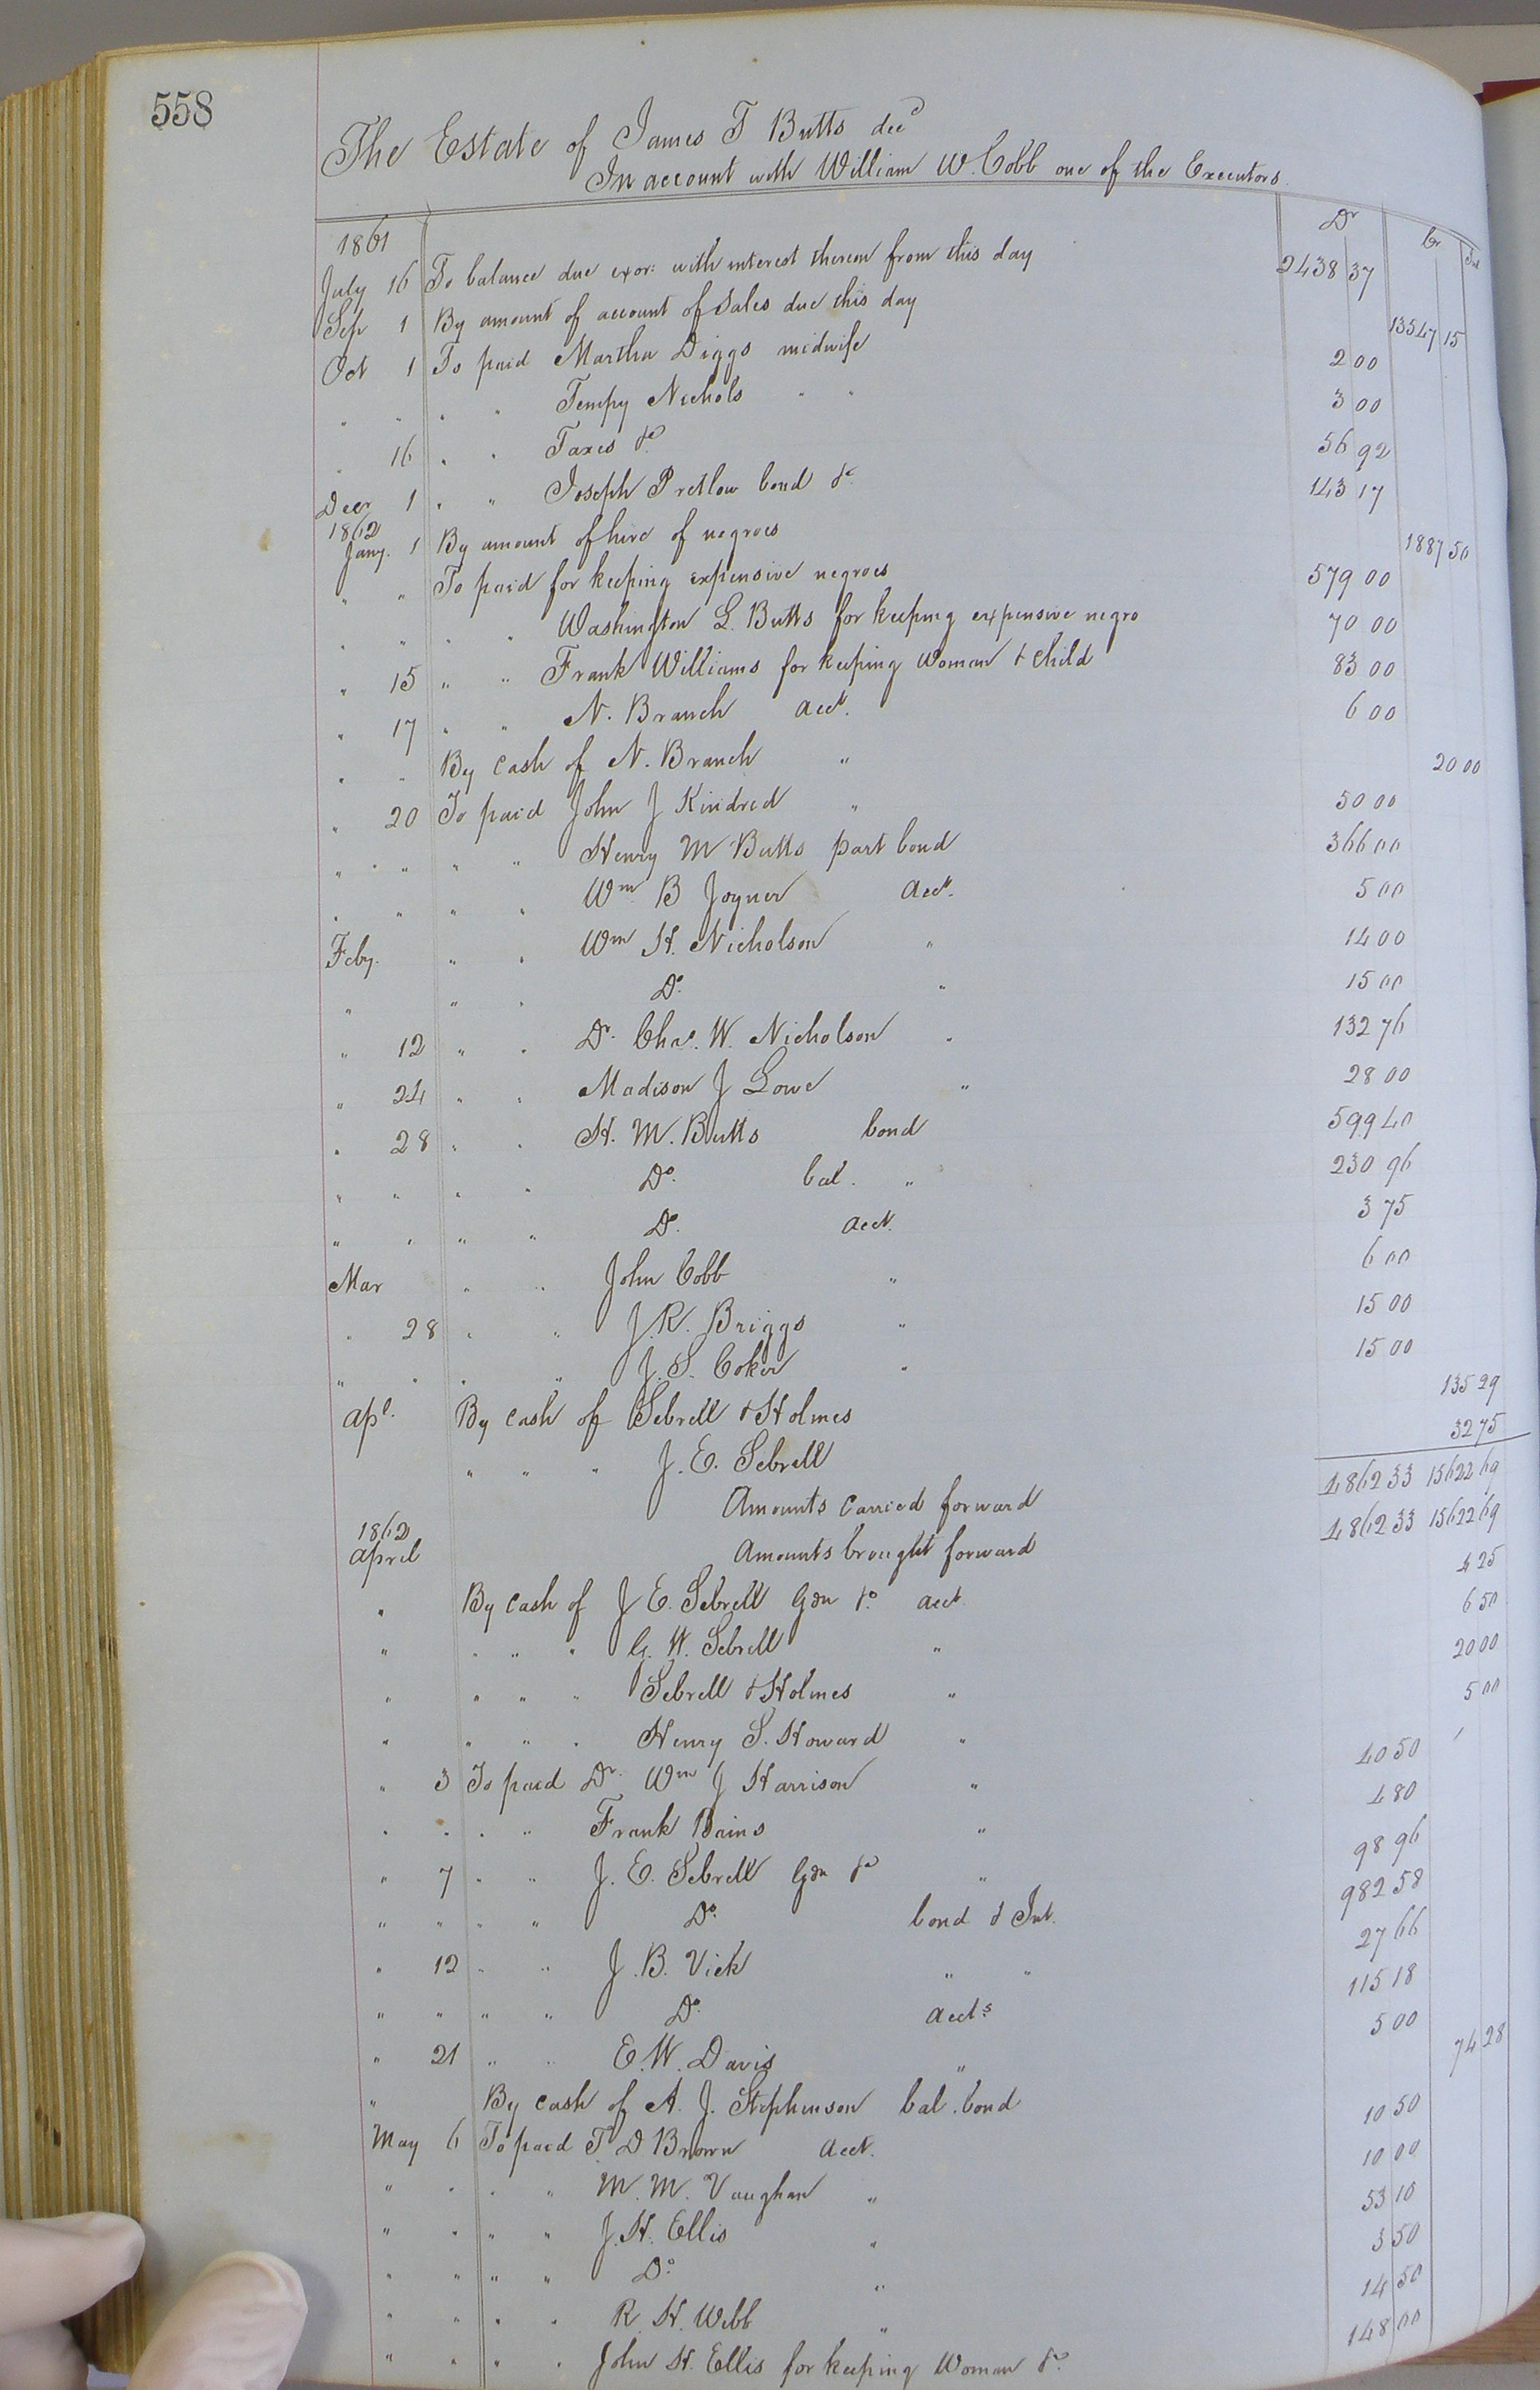 558
The Estate of James T Butts decd
In account with William W. Cobb one of the Executors
Dr Cr Int
1861
July 16 To balance due exor: with interest thereon from this day 2438 37
Sep 1 By amount of account of Sales due this day 13547 15
Oct 1 To paid Martha Diggs midwife 2 00
" " " " Tempy Nichols " " 3 00
" 16 " " Taxes &c 56 92
Decr 1 " " Joseph Pretlow bond &c 143 17
1862
Jany. 1 By amount of hire of negroes 1887 50
" " To paid for keeping expensive negroes 579 00
" " " " Washington L. Butts for keeping expensive negro 70 00
" 15 " " Frank Williams for keeping Woman & Child 83 00
" 17 " " N. Branch acct. 6 00
" " By cash of N. Branch " 20 00
" 20 To paid John J Kindred " 50 00
" " " " Henry M Butts part bond 366 00
" " " " Wm B Joyner acct. 5 00
Feby. " " Wm H. Nicholson " 14 00
" " " Do. " 15 00
" 12 " " Dr. Chs. W. Nicholson " 132 76
" 24 " " Madison J Lowe " 28 00
" 28 " " H. M. Butts bond 599 40
" " " " Do. bal. " 230 96
" " " " Do. acct. 3 75
Mar " " John Cobb " 6 00
" 28 " " J. R. Briggs " 15 00
" " " " J. S. Coker " 15 00
apl. By cash of Sebrell & Holmes 135 29
" " " J. E. Sebrell 32 75
Amounts carried forward 4862 33 15622 69
1862
april Amounts brought forward 4862 33 15622 69
" By cash of J E. Sebrell Gdn &c. acct. 4 25
" " " " G. W. Sebrell " 6 50
" " " " Sebrell & Holmes " 20 00
" " " " Henry S. Howard " 5 00
" 3 To paid Dr. Wm J Harrison " 40 50
" " " " Frank Bains " 4 80
" 7 " " J. E. Sebrell Gdn &c " 98 96
" " " " Do. bond & Int. 982 58
" 12 " " J. B. Vick " " 27 66
" " " " Do. accts 115 18
" 21 " " E. W. Davis " 5 00
" By cash of A. J. Stephenson bal. bond 74 28
May 6 To paid T D Brown acct. 10 50
" " " " M. M. Vaughan " 10 00
" " " " J. H. Ellis " 53 10
" " " " Do. " 3 50
" " " " R. H. Webb " 14 50
" " " " John H. Ellis for keeping Woman &c. 148 00